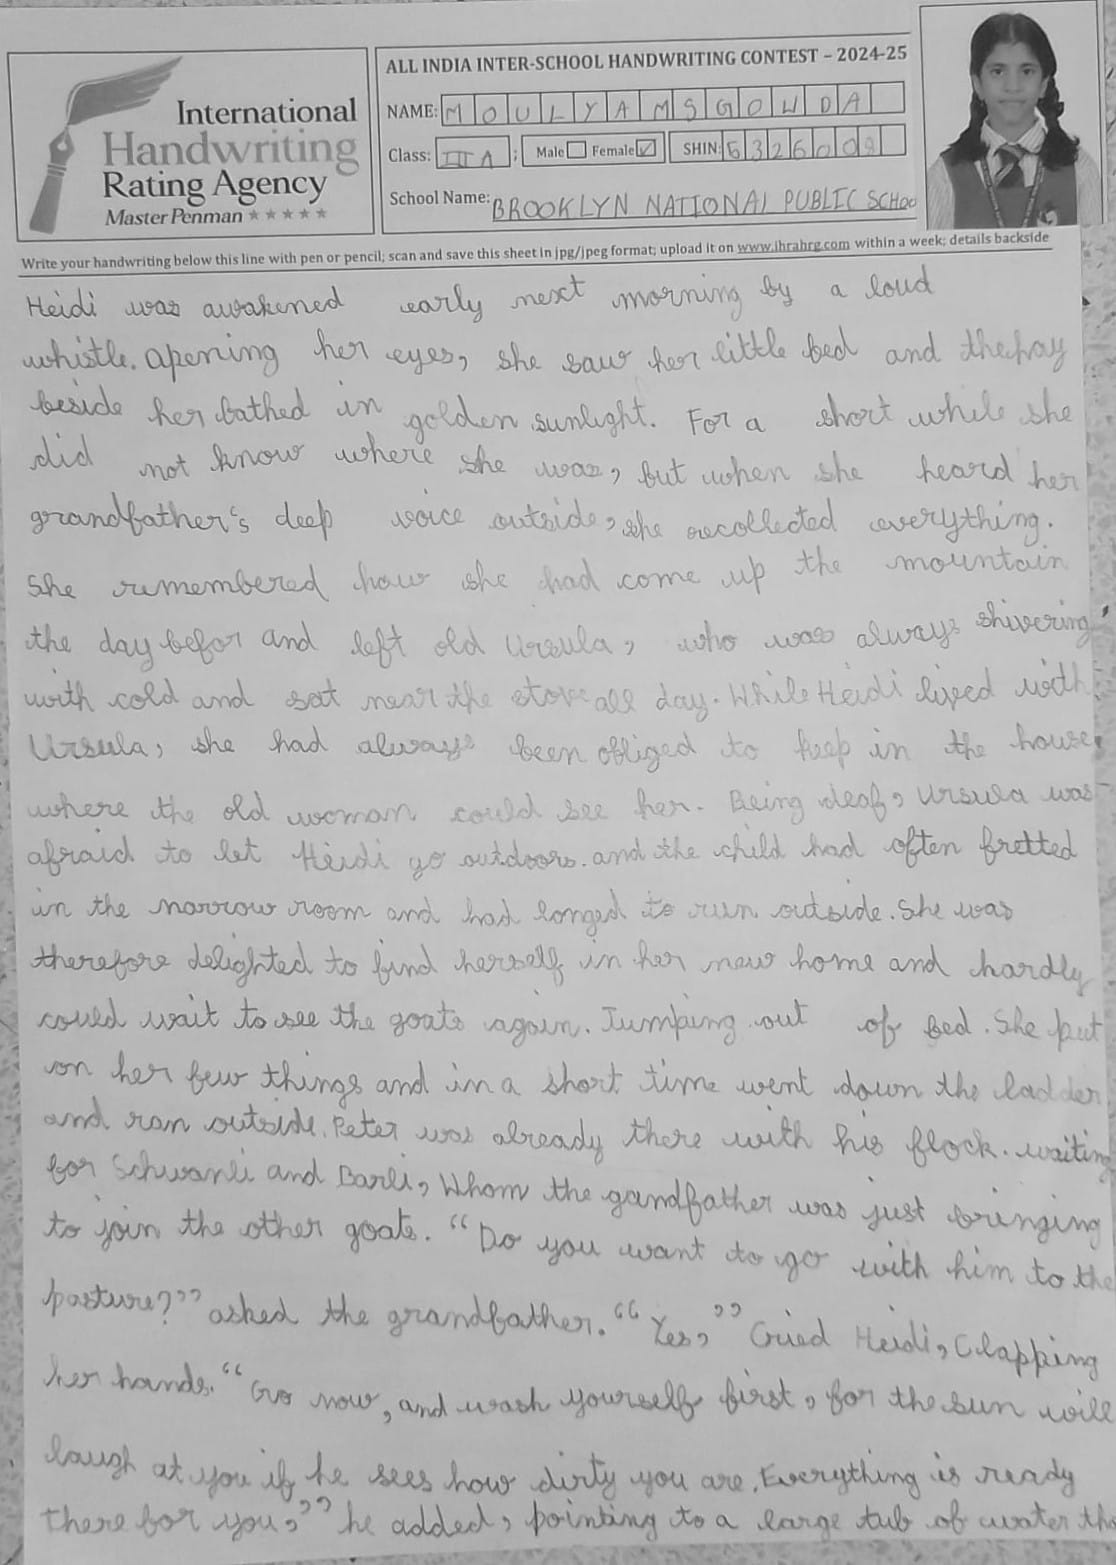 International
Handwriting
Rating Agency
Master Penman ★★★★★
ALL INDIA INTER-SCHOOL HANDWRITING CONTEST – 2024-25
NAME: MOULYA M S GOWDA
Class: III A ; Male Female ✓ SHIN: 5326008
School Name: BROOKLYN NATIONAL PUBLIC SCHOO
Write your handwriting below this line with pen or pencil; scan and save this sheet in jpg/jpeg format; upload it on www.ihrahrg.com within a week; details backside
Heidi was awakened early next morning by a loud
whistle. Opening her eyes, she saw her little bed and the hay
beside her bathed in golden sunlight. For a short while she
did not know where she was, but when she heard her
grandfather's deep voice outside, she recollected everything.
She remembered how she had come up the mountain
the day befor and left old Ursula, who was always shivering
with cold and sat near the stove all day. While Heidi lived with
Ursula, she had always been obliged to keep in the house,
where the old woman could see her. Being deaf, Ursula was
afraid to let Heidi go outdoors. and the child had often fretted
in the narrow room and had longed to run outside. She was
therefore delighted to find herself in her new home and hardly
could wait to see the goats again. Jumping out of bed. She put
on her few things and in a short time went down the ladder
and ran outside. Peter was already there with his flock. waiting
for Schwanli and Barli, Whom the gandfather was just bringing
to join the other goats. "Do you want to go with him to the
pasture?" asked the grandfather. "Yes," Cried Heidi, Clapping
her hands. "Go now, and wash yourself first, for the sun will
laugh at you if he sees how dirty you are. Everything is ready
there for you," he added, pointing to a large tub of water tha